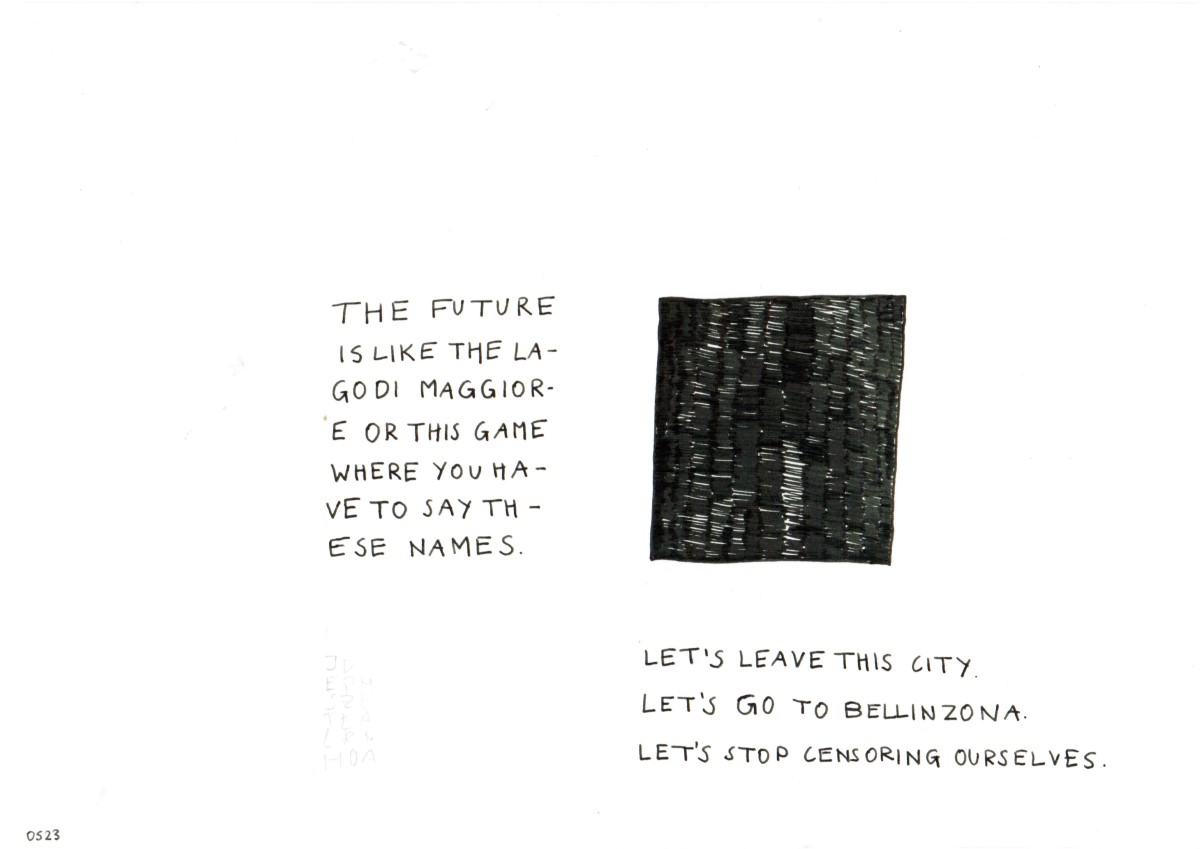 THE FUTURE
IS LIKE THE LA-
GO DI MAGGIOR-
E OR THIS GAME
WHERE YOU HA-
VE TO SAY TH-
ESE NAMES.
LET'S LEAVE THIS CITY.
LET'S GO TO BELLINZONA.
LET'S STOP CENSORING OURSELVES.
0523